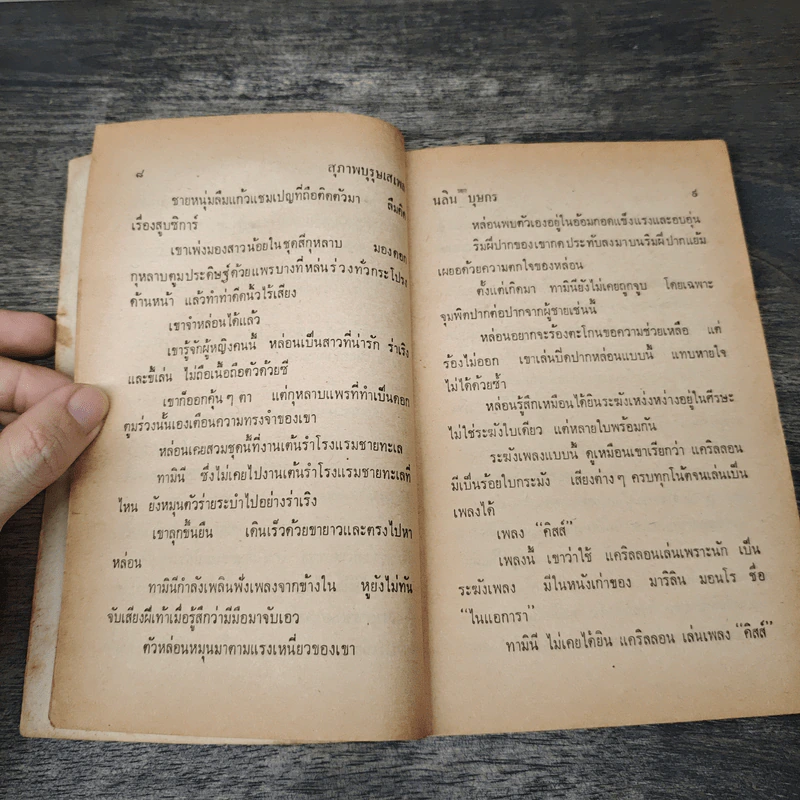 ๘ สุภาพบุรุษเสเพล
ชายหนุ่มลืมแก้วแชมเปญที่ถือติดตัวมา ลืมคิด
เรื่องสูบซิการ์
เขาเพ่งมองสาวน้อยในชุดสีกุหลาบ มองดอก
กุหลาบตูมประดิษฐ์ด้วยแพรบางที่หล่นร่วงทั่วกระโปรง
ด้านหน้า แล้วทำท่าดีดนิ้วไร้เสียง
เขาจำหล่อนได้แล้ว
เขารู้จักผู้หญิงคนนี้ หล่อนเป็นสาวที่น่ารัก ร่าเริง
และขี้เล่น ไม่ถือเนื้อถือตัวด้วยซี
เขาก็ออกคุ้น ๆ ตา แต่กุหลาบแพรที่ทำเป็นดอก
ตูมร่วงนั้นเองเตือนความทรงจำของเขา
หล่อนเคยสวมชุดนี้ที่งานเต้นรำโรงแรมชายทะเล
ทามินี ซึ่งไม่เคยไปงานเต้นรำโรงแรมชายทะเลที่
ไหน ยังหมุนตัวร่ายระบำไปอย่างร่าเริง
เขาลุกขึ้นยืน เดินเร็วด้วยขายาวและตรงไปหา
หล่อน
ทามินีกำลังเพลินฟังเพลงจากข้างใน หูยังไม่ทัน
จับเสียงฝีเท้าเมื่อรู้สึกว่ามีมือมาจับเอว
ตัวหล่อนหมุนมาตามแรงเหนี่ยวของเขา
นลิน บุษกร ๙
หล่อนพบตัวเองอยู่ในอ้อมกอดแข็งแรงและอบอุ่น
ริมฝีปากของเขากดประทับลงมาบนริมฝีปากแย้ม
เผยอด้วยความตกใจของหล่อน
ตั้งแต่เกิดมา ทามินียังไม่เคยถูกจูบ โดยเฉพาะ
จุมพิตปากต่อปากจากผู้ชายเช่นนี้
หล่อนอยากจะร้องตะโกนขอความช่วยเหลือ แต่
ร้องไม่ออก เขาเล่นปิดปากหล่อนแบบนี้ แทบหายใจ
ไม่ได้ด้วยซ้ำ
หล่อนรู้สึกเหมือนได้ยินระฆังเหง่งหง่างอยู่ในศีรษะ
ไม่ใช่ระฆังใบเดียว แต่หลายใบพร้อมกัน
ระฆังเพลงแบบนี้ ดูเหมือนเขาเรียกว่า แคริลลอน
มีเป็นร้อยใบกระมัง เสียงต่าง ๆ ครบทุกโน้ตจนเล่นเป็น
เพลงได้
เพลง “คิสส์”
เพลงนี้ เขาว่าใช้ แคริลลอนเล่นเพราะนัก เป็น
ระฆังเพลง มีในหนังเก่าของ มาริลิน มอนโร ชื่อ
“ไนแอการา”
ทามินี ไม่เคยได้ยิน แคริลลอน เล่นเพลง “คิสส์”